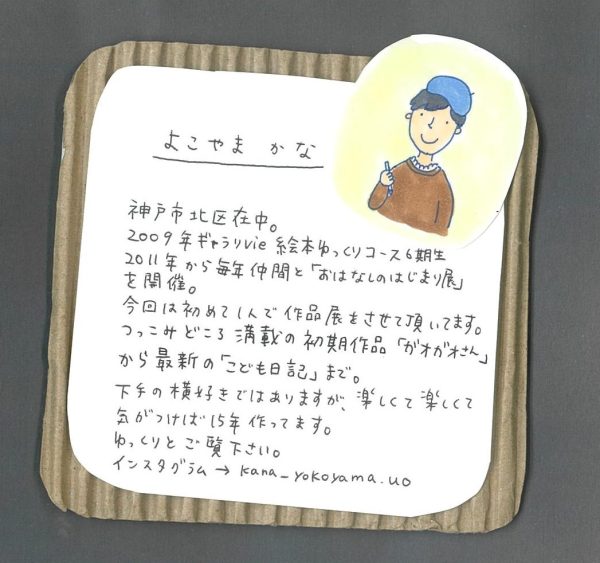 よこやま かな
神戸市北区在中。
2009年ギャラリvie 絵本ゆっくりコース6期生
2011年から毎年仲間と「おはなしのはじまり展」
を開催。
今回は初めて1人で作品展をさせて頂いてます。
つっこみどころ満載の初期作品「がオがオさん」
から最新の「こども日記」まで。
下手の横好きではありますが、楽しくて楽しくて
気がつけば15年作ってます。
ゆっくりとご覧下さい。
インスタグラム→kana_yokoyama.uo